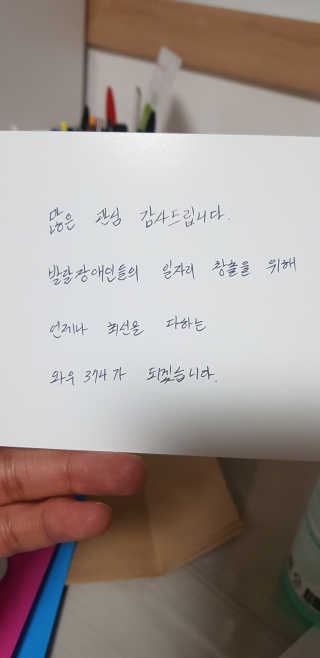 많은 관심 감사드립니다.
발달장애인들의 일자리 창출을 위해
언제나 최선을 다하는
와우 374가 되겠습니다.